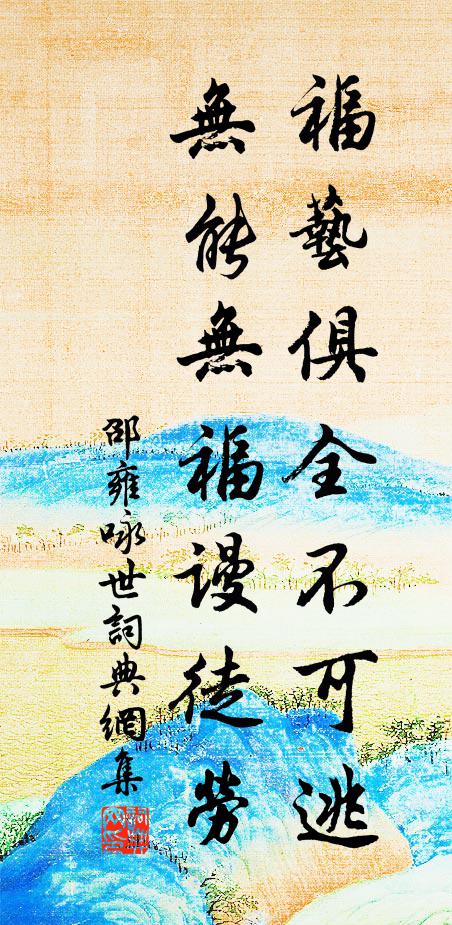 福藝俱全不可逃
無能無福謾徒勞
邵雍咏世詞典網集